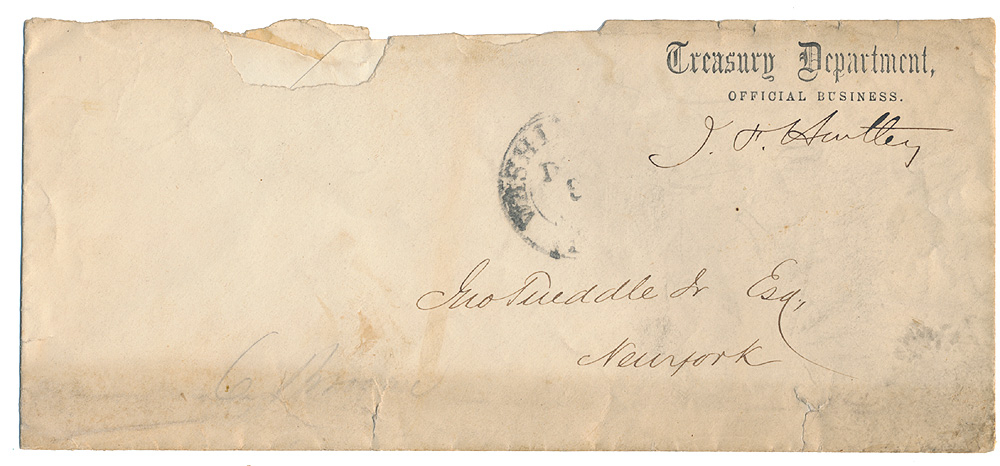 Treasury Department,
OFFICIAL BUSINESS.
J. F. Hartley
WASHI
Jno Tweddle Jr Esq,
New York